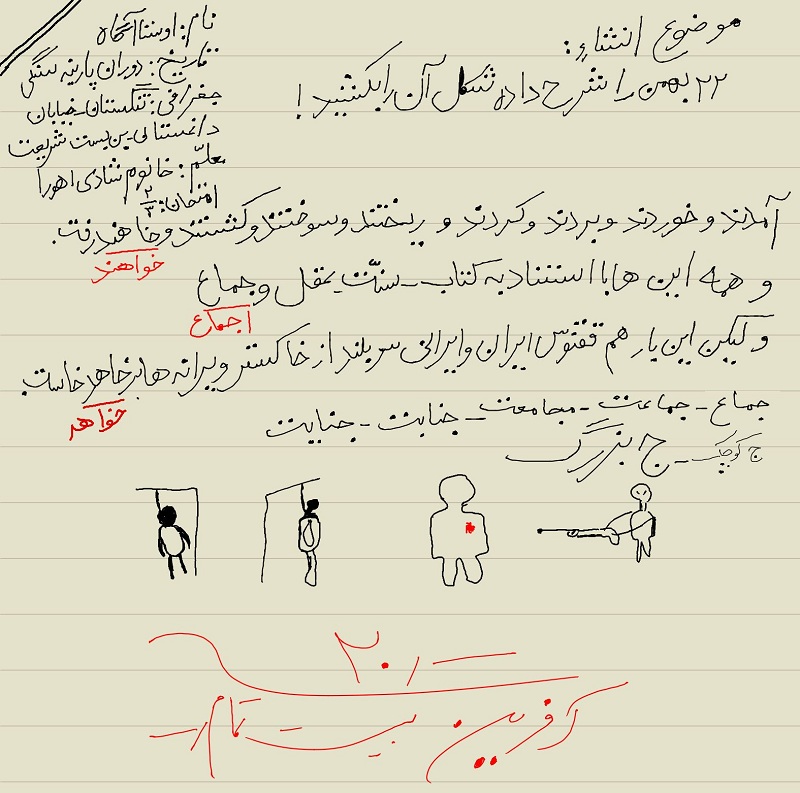 موضوع انشاء:
۲۲ بهمن را شرح داده شکل آن را بکشید!
نام: اوستا آگاه
تاریخ: دوران پارینه سنگی
جغرافی: تنگستان - خیابان
داغستانی - بن بست شریعت
معلّم: خانوم شادی اهورا
امتحان: ۲/۳
آمدند و خوردند و بردند و کردند و ریختند و سوختند و کشتند و خاهند رفت.
خواهند
و همه این ها با استناد به کتاب - سنّت - عقل و جماع
اجماع
و لیکن این بار هم ققنوس ایران و ایرانی سربلند از خاکستر ویرانه ها بر خاهد خاست.
خواهد
جماع - جماعت - مجامعت - جنابت - جنایت
ج کوچک - ج بزرگ
۲۰
آفرین بیست تمام